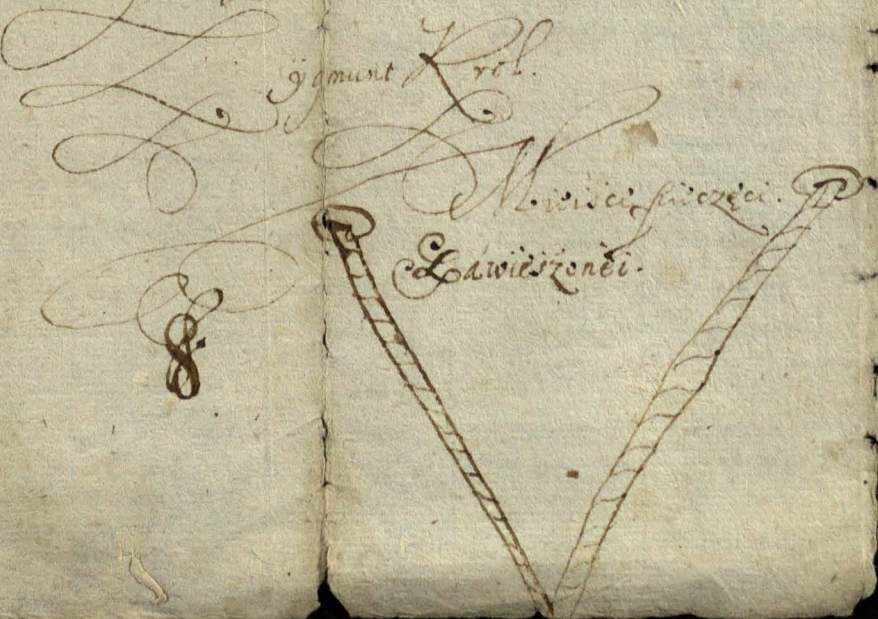 Zygmunt Krol.
Mieisce pieczęci.
Zawieszonei.
8.